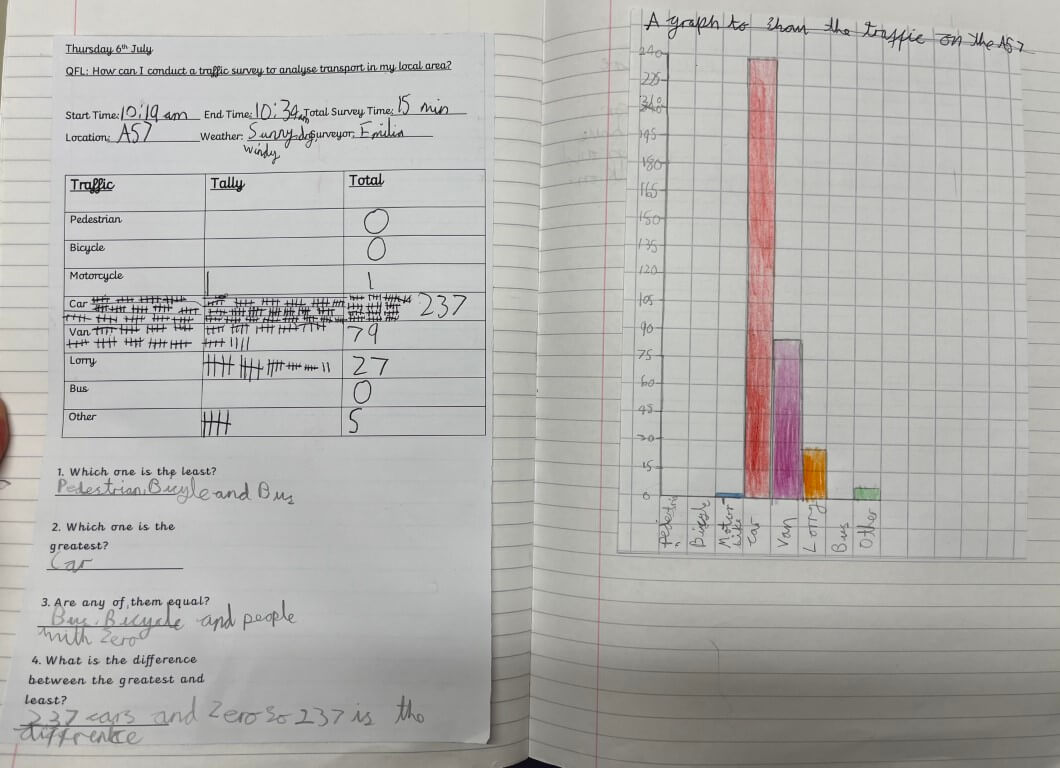 Thursday 6th July
QFL: How can I conduct a traffic survey to analyse transport in my local area?
Start Time: 10:19 am End Time: 10:34am Total Survey Time: 15 min
Location: A57 Weather: Sunny, dry Surveyor: Emilia
Windy
Traffic Tally Total
Pedestrian 0
Bicycle 0
Motorcycle 1
Car 237
Van 79
Lorry 27
Bus 0
Other 5
1. Which one is the least?
Pedestrian, Bicyle and Bus
2. Which one is the
greatest?
Car
3. Are any of them equal?
Bus, Bicycle and people
with Zero
4. What is the difference
between the greatest and
least?
237 cars and Zero so 237 is the
diffrence
A graph to show the traffic on the A57
240
225
210
195
180
165
150
135
120
105
90
75
60
45
30
15
0
Motor
bike
Car
Van
Lorry
Bus
Other